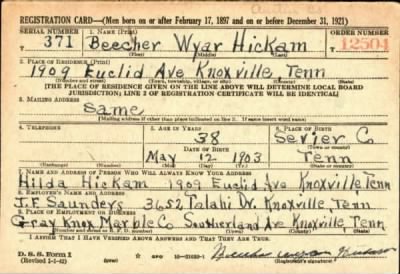 REGISTRATION CARD—(Men born on or after February 17, 1897 and on or before December 31, 1921)
SERIAL NUMBER 1. NAME (Print) ORDER NUMBER
371 Beecher Wyar Hickam 12504
2. PLACE OF RESIDENCE (Print)
1909 Euclid Ave Knoxville, Tenn
(Number and street) (Town, township, village, or city) (County) (State)
[THE PLACE OF RESIDENCE GIVEN ON THE LINE ABOVE WILL DETERMINE LOCAL BOARD
JURISDICTION; LINE 2 OF REGISTRATION CERTIFICATE WILL BE IDENTICAL]
3. MAILING ADDRESS
Same
[Mailing address if other than place indicated on line 2. If same insert word same]
4. TELEPHONE 5. AGE IN YEARS 6. PLACE OF BIRTH
38 Sevier Co
DATE OF BIRTH (Town or county)
May 12 1903 Tenn
(Exchange) (Number) (Mo.) (Day) (Yr.) (State or country)
7. NAME AND ADDRESS OF PERSON WHO WILL ALWAYS KNOW YOUR ADDRESS
Hilda Hickam 1909 Euclid Ave Knoxville, Tenn
8. EMPLOYER'S NAME AND ADDRESS
J.F. Saunders 3652 Talahi Dr. Knoxville, Tenn.
9. PLACE OF EMPLOYMENT OR BUSINESS
Gray Knox Marble Co Southerland Ave Knoxville, Tenn
(Number and street or R. F. D. number) (Town) (County) (State)
I AFFIRM THAT I HAVE VERIFIED ABOVE ANSWERS AND THAT THEY ARE TRUE.
D. S. S. Form 1
(Revised 1-1-42) (over) GPO 16—21630-1 Beecher Wyar Hickam
(Registrant's signature)